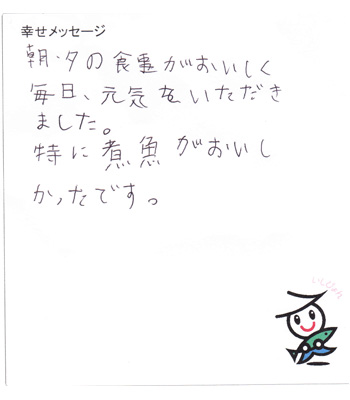 幸せメッセージ
朝・夕の食事がおいしく
毎日、元気をいただき
ました。
特に煮魚がおいし
かったです。